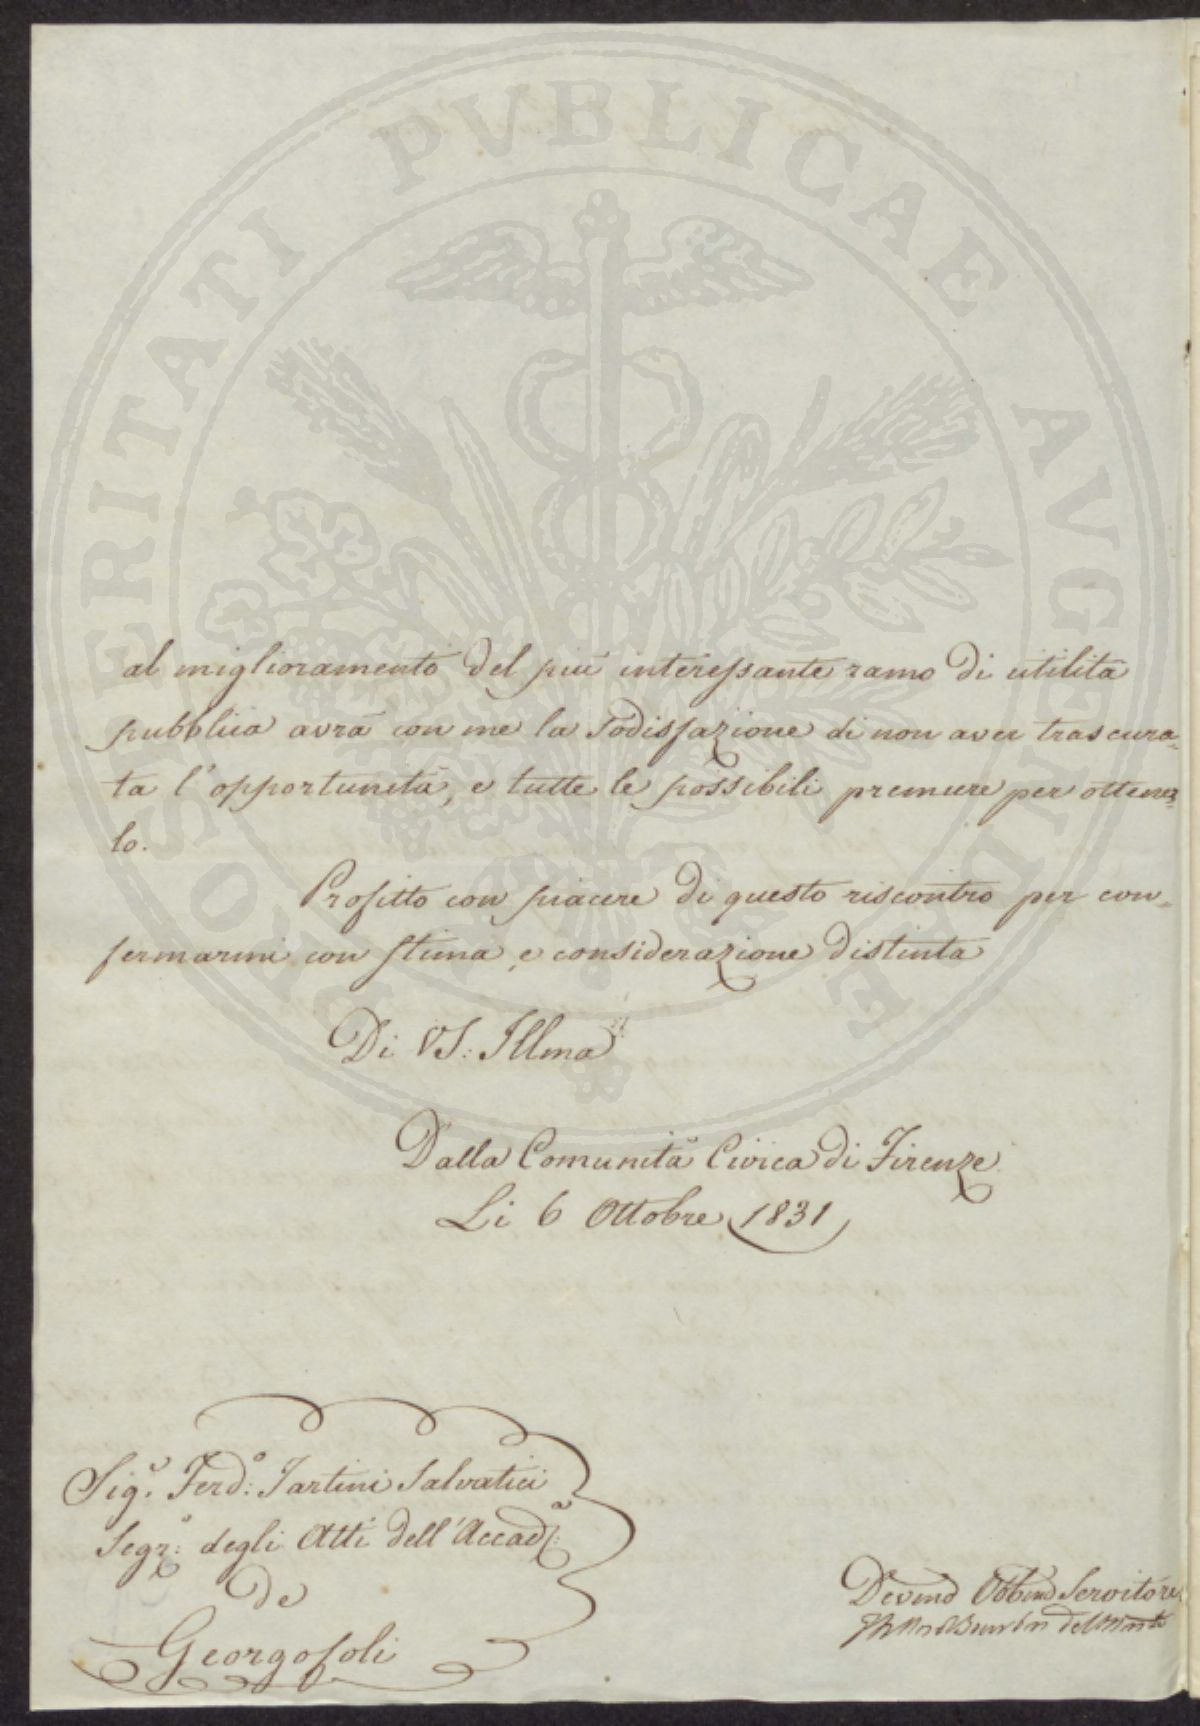 PROSPERITATI PVBLICAE AVGENDAE
al miglioramento del più interessante ramo di utilità
pubblica avrà con me la Sodisfazione di non aver trascura-
ta l'opportunità, e tutte le possibili premure per ottener-
lo.
Profitto con piacere di questo riscontro per con-
fermarmi con stima, e considerazione distinta
Di VS: Illma
Dalla Comunità Civica di Firenze
Li 6 Ottobre 1831
Sigr. Ferdo: Tartini Salvatici
Segr: degli Atti dell'Accada:
De
Georgofoli
Devmo Obbmo Servitore